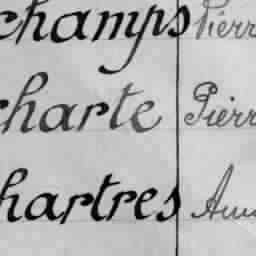 champs Pierr
charte Pierr
hartres